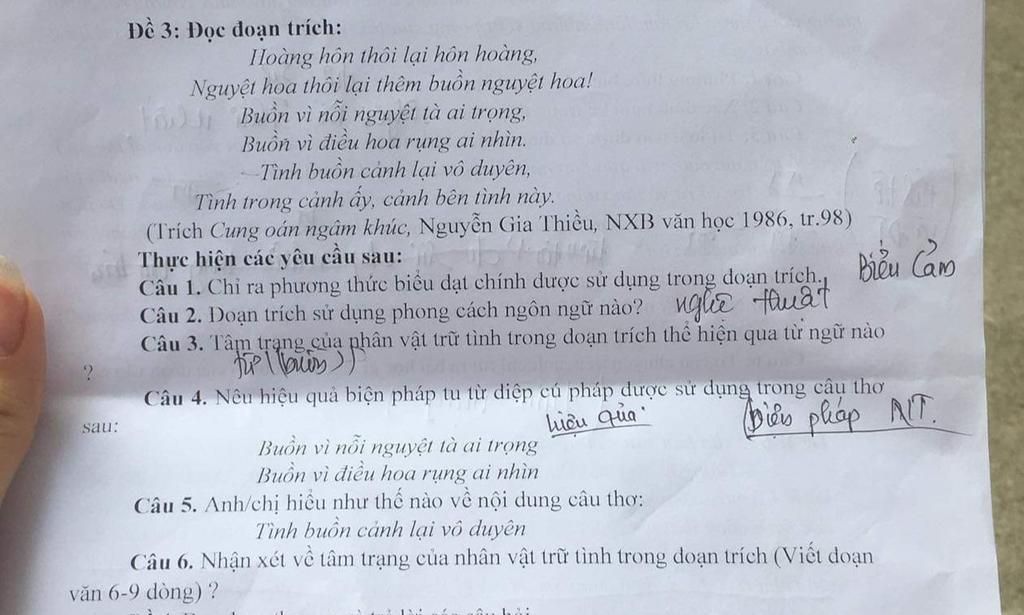 Đề 3: Đọc đoạn trích:
Hoàng hôn thôi lại hôn hoàng,
Nguyệt hoa thôi lại thêm buồn nguyệt hoa!
Buồn vì nỗi nguyệt tà ai trọng,
Buồn vì điều hoa rụng ai nhìn.
Tình buồn cảnh lại vô duyên,
Tình trong cảnh ấy, cảnh bên tình này.
(Trích Cung oán ngâm khúc, Nguyễn Gia Thiều, NXB văn học 1986, tr.98)
Thực hiện các yêu cầu sau:
Câu 1. Chỉ ra phương thức biểu đạt chính được sử dụng trong đoạn trích. Biểu Cảm
Câu 2. Đoạn trích sử dụng phong cách ngôn ngữ nào? nghệ thuật
Câu 3. Tâm trạng của nhân vật trữ tình trong đoạn trích thể hiện qua từ ngữ nào
? từ (buồn)
Câu 4. Nêu hiệu quả biện pháp tu từ điệp cú pháp được sử dụng trong câu thơ
sau: hiệu quả: Biện pháp NT.
Buồn vì nỗi nguyệt tà ai trọng
Buồn vì điều hoa rụng ai nhìn
Câu 5. Anh/chị hiểu như thế nào về nội dung câu thơ:
Tình buồn cảnh lại vô duyên
Câu 6. Nhận xét về tâm trạng của nhân vật trữ tình trong đoạn trích (Viết đoạn
văn 6-9 dòng) ?